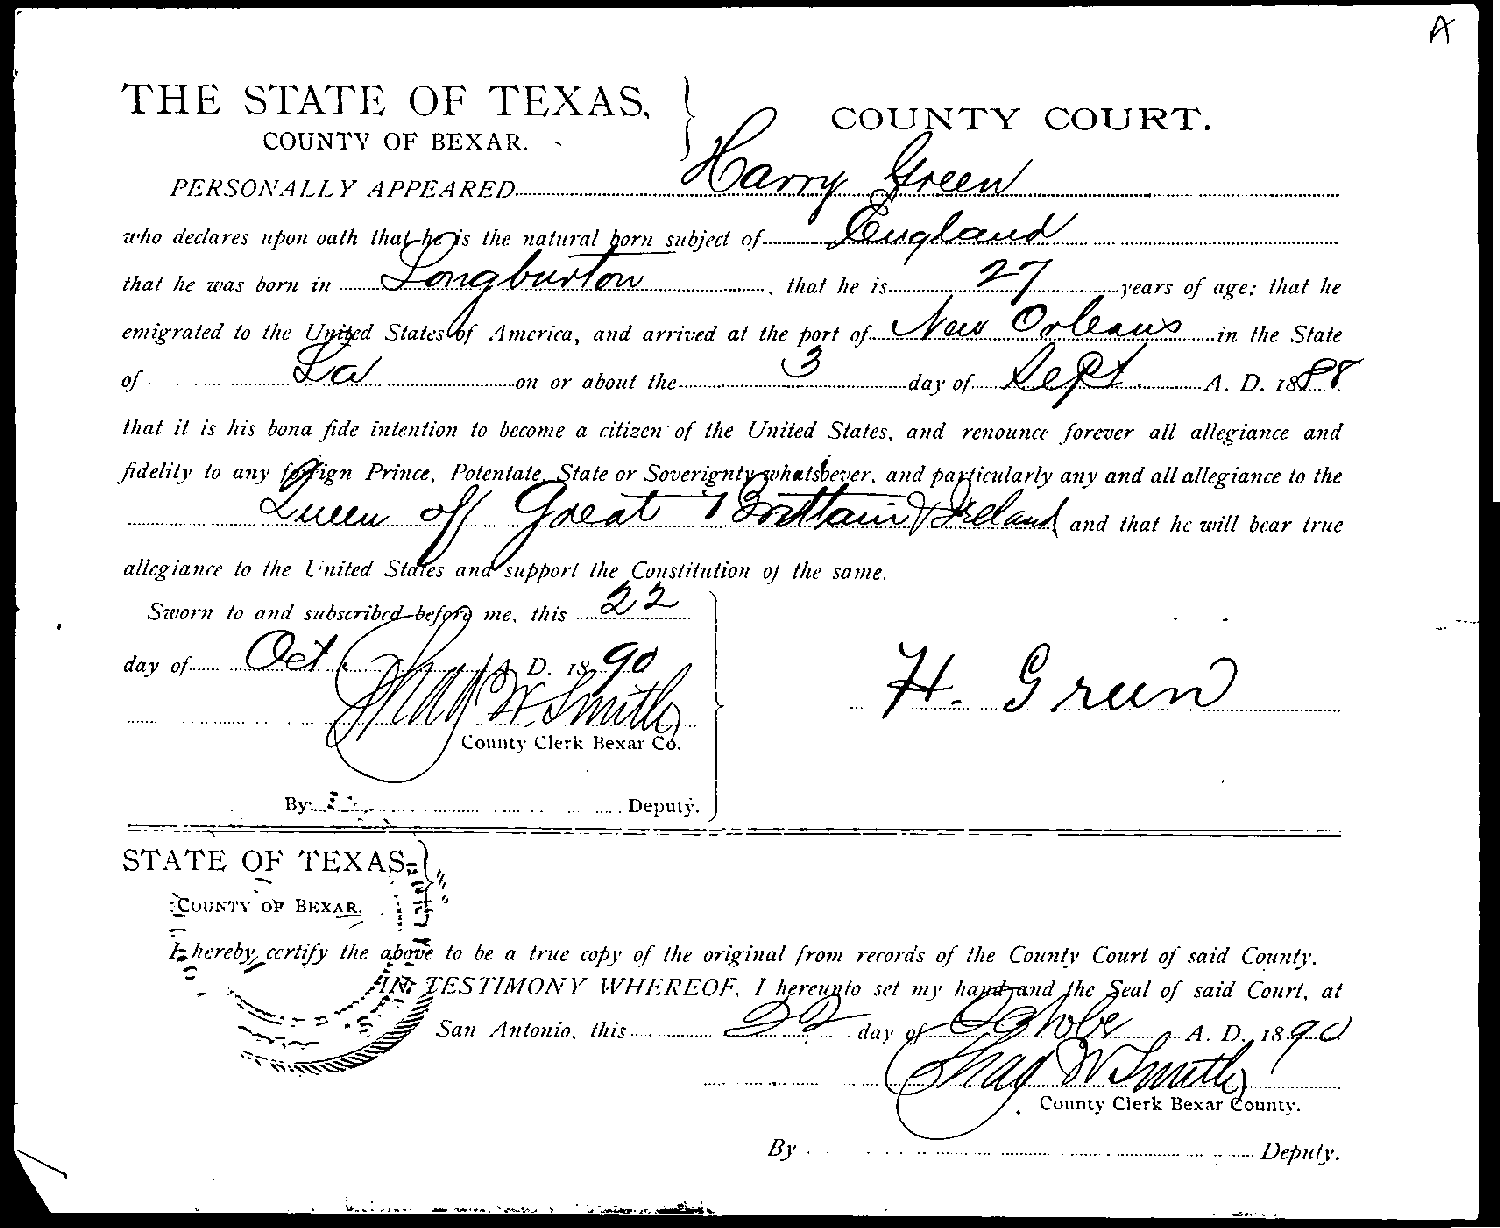 A
THE STATE OF TEXAS,
COUNTY OF BEXAR.
COUNTY COURT.
PERSONALLY APPEARED Harry Green
who declares upon oath that he is the natural born subject of England
that he was born in Longburton, that he is 27 years of age; that he
emigrated to the United States of America, and arrived at the port of New Orleans in the State
of La on or about the 3 day of Sept A. D. 1888
that it is his bona fide intention to become a citizen of the United States, and renounce forever all allegiance and
fidelity to any foreign Prince, Potentate, State or Soverignty whatsoever, and particularly any and all allegiance to the
Queen off Great Brittain & Ireland and that he will bear true
allegiance to the United States and support the Constitution of the same.
Sworn to and subscribed before me, this 22
day of Oct. A. D. 1890
Thad W. Smith
County Clerk Bexar Co.
By Deputy.
H. Green
STATE OF TEXAS,
COUNTY OF BEXAR.
I hereby certify the above to be a true copy of the original from records of the County Court of said County.
IN TESTIMONY WHEREOF, I hereunto set my hand and the Seal of said Court, at
San Antonio, this 22 day of Octobe A. D. 1890
Thad W. Smith
County Clerk Bexar County.
By Deputy.